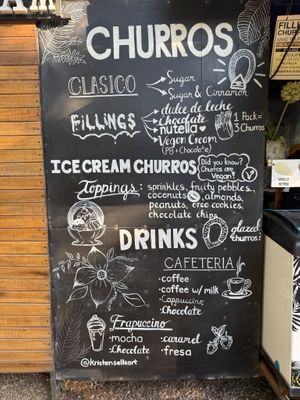 CHURROS
CLASICO
Sugar
Sugar & Cinnamon
FILLINGS
dulce de leche
Chocolate
nutella
Vegan Cream
(PB + Chocolate)
1 Pack =
3 Churros
ICE CREAM CHURROS
Did you know?
Churros are
Vegan!
Toppings: sprinkles, fruity pebbles,
coconuts, almonds,
peanuts, oreo cookies,
chocolate chips
DRINKS
glazed
churros!
CAFETERIA
·coffee
·coffee w/ milk
·Cappuccino
·Chocolate
Frapuccino
·mocha
·Chocolate
·caramel
·fresa
@Kristensellsart
FILLE